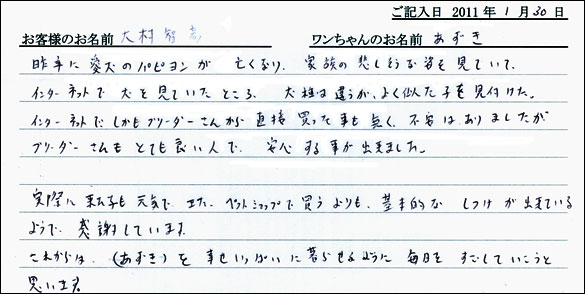 ご記入日 2011年1月30日
お客様のお名前 大村 智 ワンちゃんのお名前 あずき
昨年に愛犬のパピヨンが 亡くなり、家族の悲しそうな姿を見ていて、
インターネットで犬を見ていたところ、犬種は違うが、よく似た子を見付けた。
インターネットで、しかもブリーダーさんから直接買った事も無く、不安はありましたが
ブリーダーさんもとても良い人で、安心する事が出来ました。
実際に来た子も元気で、また、ペットショップで買うよりも、基本的なしつけが出来ている
ようで、感謝しています。
これからは、(あずき)を幸せいっぱいに暮らせるように毎日をすごしていこうと
思います。